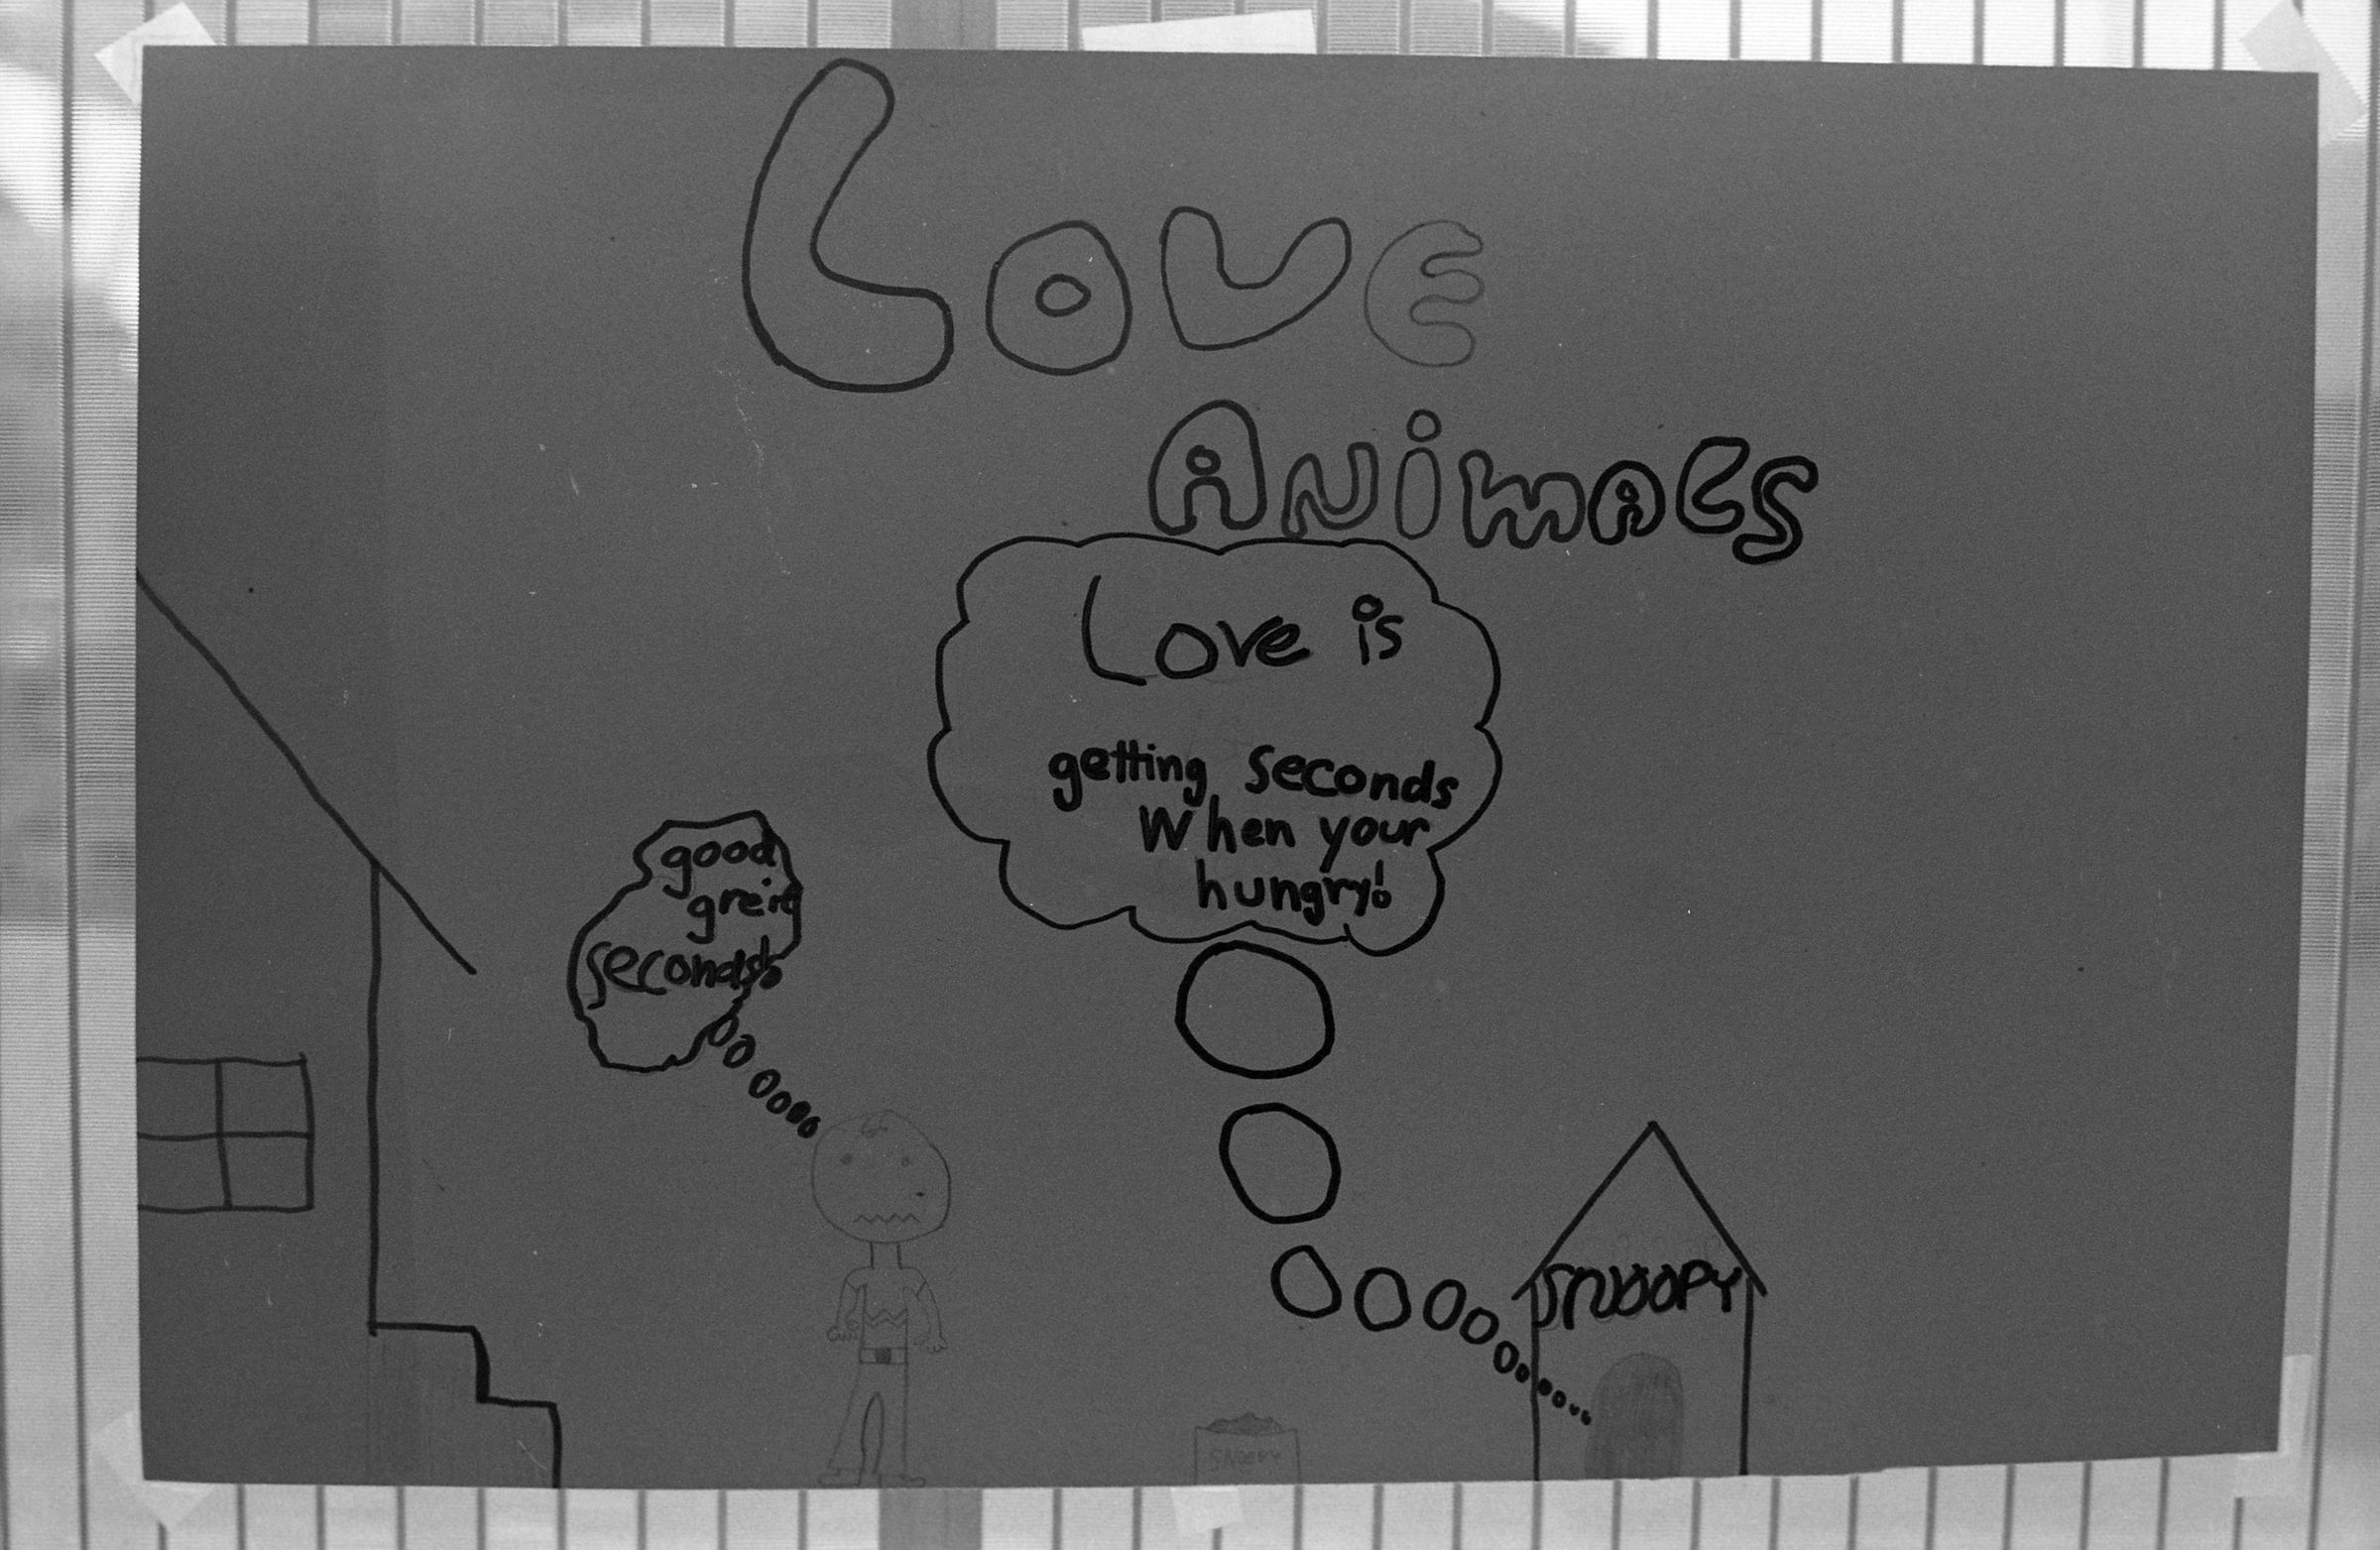 Love
Animals
Love is
getting seconds
When your
hungry!
good
greif
seconds!
SNOOPY
SNOOPY